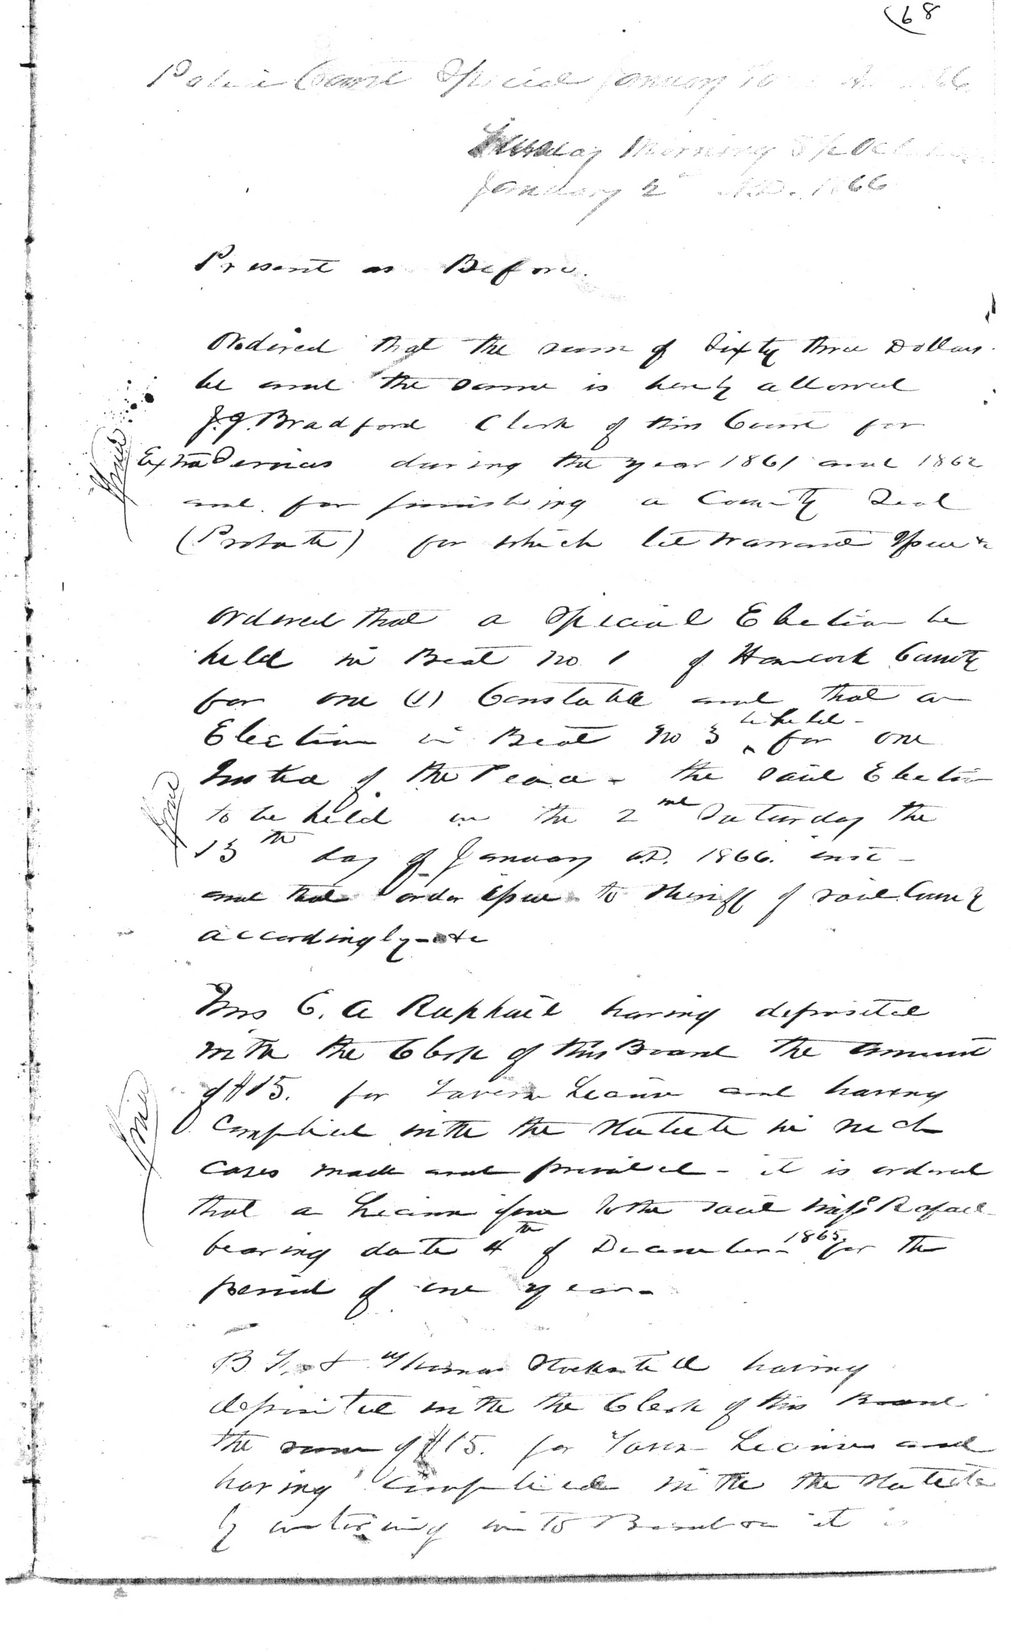 68
Police Court Special January 1866
Tuesday Morning 9 o'clock
January 2nd A.D. 1866
Present as Before.
Ordered that the sum of Sixty three Dollars
be and the same is hereby allowed
J.J. Bradford Clerk of this Court for
Extra Services during the year 1861 and 1862
and for furnishing a County Seal
(Probate) for which let warrant Issue &c
Ordered that a Special Election be
held in Beat No 1 of Hancock County
for one (1) Constable and that an
Election in Beat No 3 be held for one
Justice of the Peace - the said Election
to be held on the 2nd Saturday the
13th day of January AD. 1866. inst -
and that order Issue to Sheriff of said County
accordingly - &c
Mrs E. A Raphael having deposited
with the Clerk of this Board the amount
of $15. for Tavern License and having
Complied with the Statute in such
cases made and provided - it is ordered
that a License issue to the said Mrs Rafael
bearing date 4th of December 1865. for the
period of one year -
B F. & Thomas Stockstill having
deposited with the Clerk of this Board
the sum of $15. for Tavern License and
having Complied with the Statute
by entering into Bond &c it is